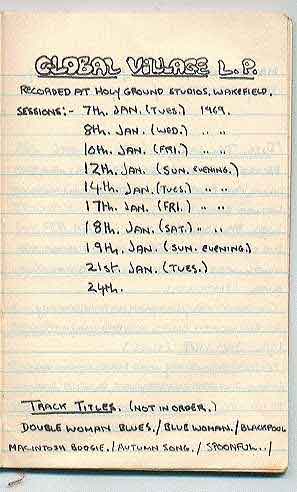 GLOBAL VILLAGE L.P.
RECORDED AT HOLY GROUND STUDIOS, WAKEFIELD.
SESSIONS:- 7th. JAN. (TUES.) 1969.
8th. JAN. (WED.) " "
10th. JAN. (FRI.) " "
12th. JAN. (SUN. EVENING.)
14th. JAN. (TUES.) " "
17th. JAN. (FRI.) " "
18th. JAN. (SAT.) " "
19th. JAN. (SUN. EVENING.)
21st. JAN. (TUES.)
24th.
TRACK TITLES. (NOT IN ORDER.)
DOUBLE WOMAN BLUES./ BLUE WOMAN./ BLACKPOOL
MACINTOSH BOOGIE./ AUTUMN SONG./ SPOONFUL../